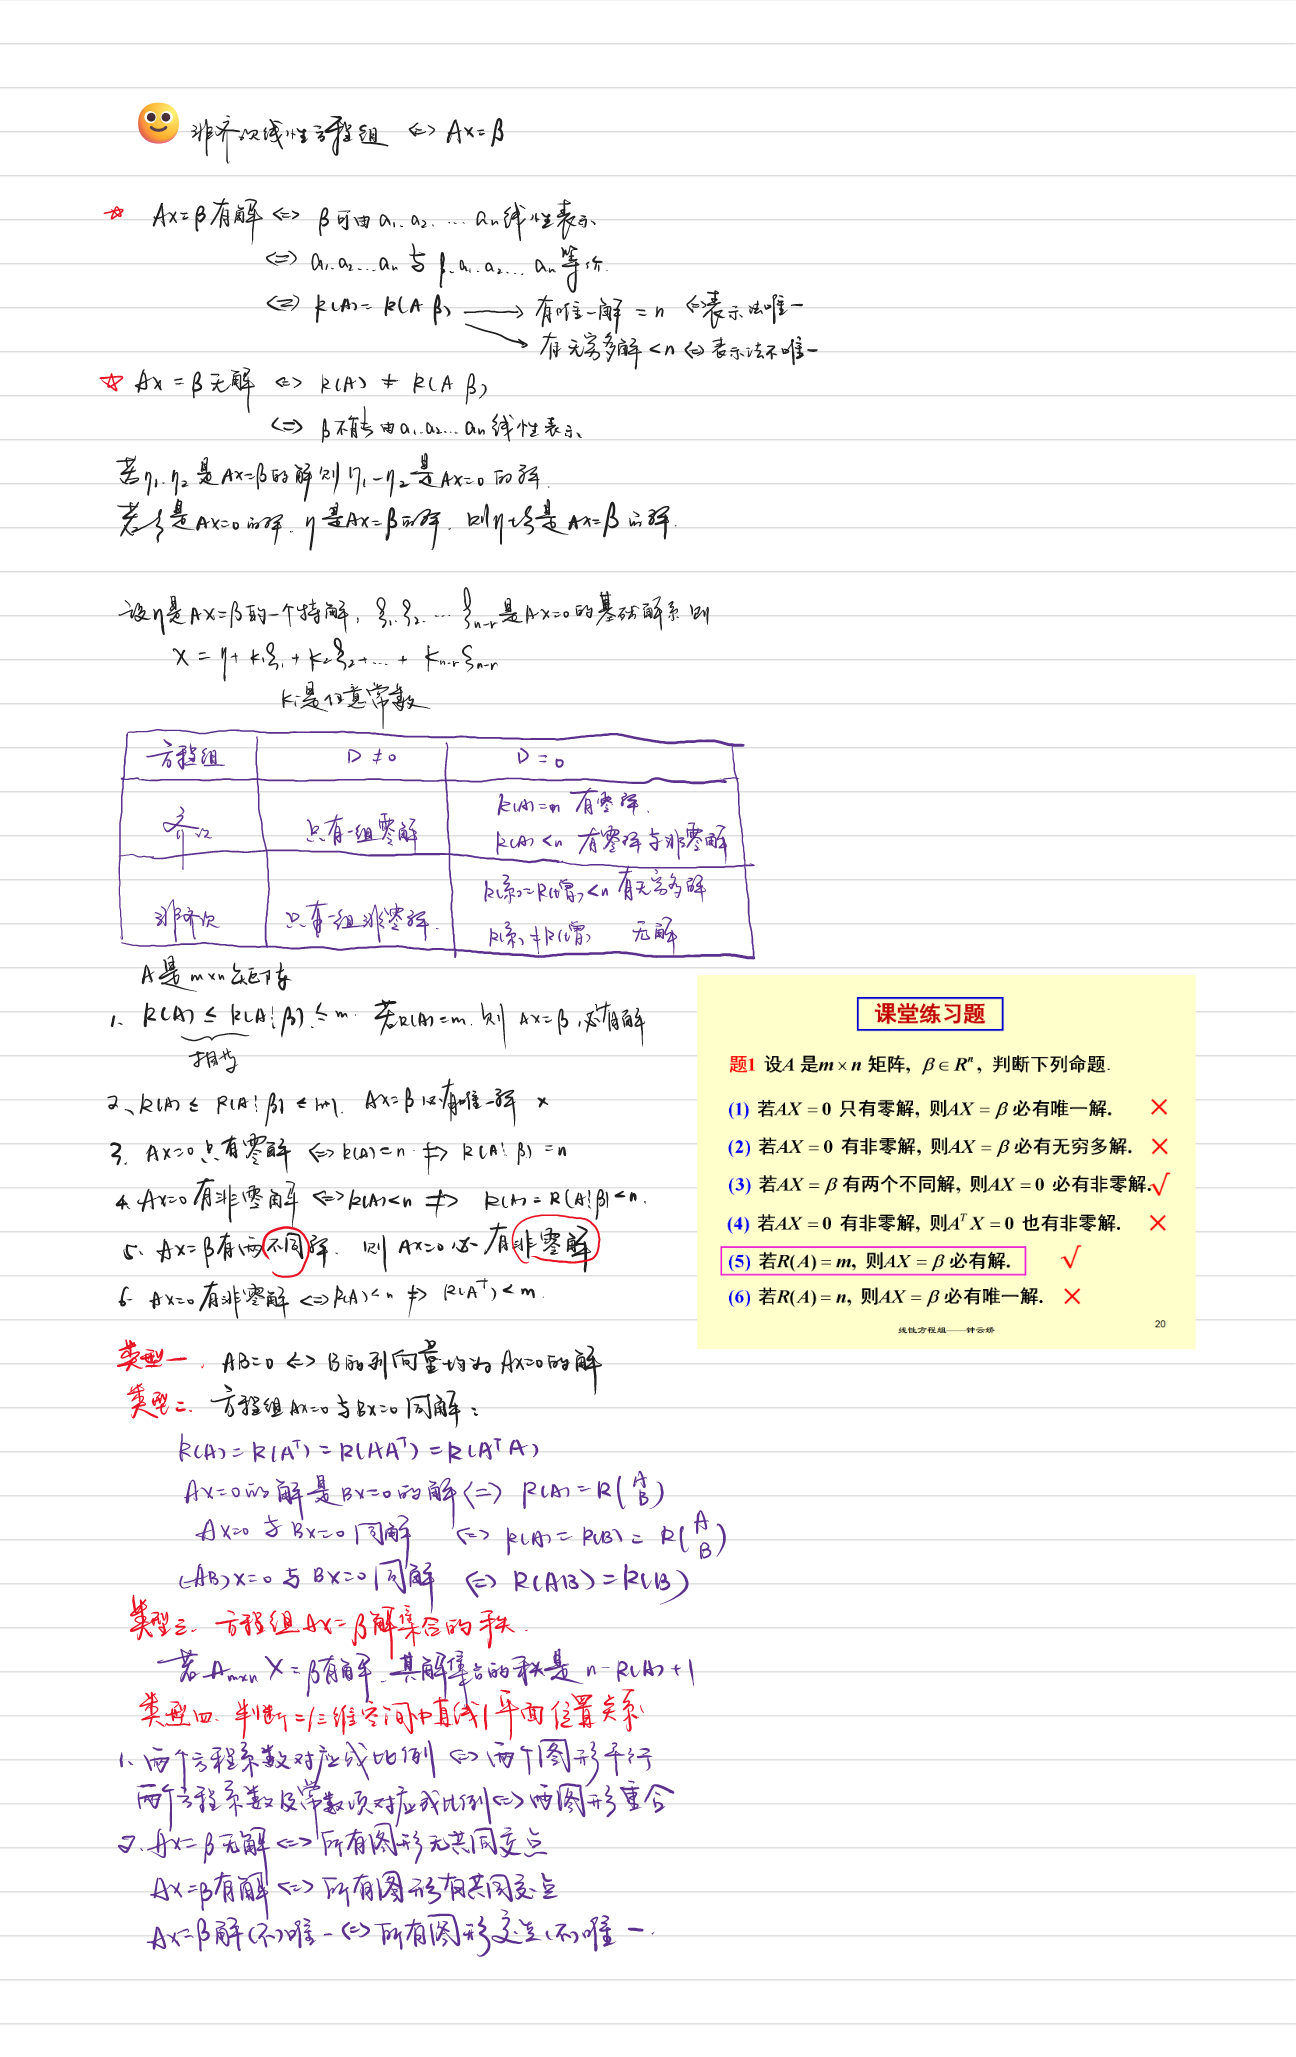 非齐次线性方程组 <=> Ax=β
☆ Ax=β有解 <=> β可由a₁.a₂.…aₙ线性表示
<=> a₁.a₂…aₙ与β.a₁.a₂…aₙ等价
<=> R(A)=R(A β) → 有唯一解=n <=>表示法唯一
→ 有无穷多解<n <=>表示法不唯一
☆ Ax=β无解 <=> R(A)≠R(A β)
<=> β不能由a₁.a₂…aₙ线性表示
若η₁.η₂是Ax=β的解则η₁-η₂是Ax=0的解.
若ξ是Ax=0的解.η是Ax=β的解.则η+ξ是Ax=β的解.
设η是Ax=β的一个特解,ξ₁.ξ₂.…ξₙ₋ᵣ是Ax=0的基础解系则
X=η+k₁ξ₁+k₂ξ₂+…+kₙ₋ᵣξₙ₋ᵣ
kᵢ是任意常数
方程组 D≠0 D=0
齐次 只有一组零解 R(A)=n 有零解.
R(A)<n 有零解与非零解
非齐次 只有一组非零解. R(系)=R(增)<n 有无穷多解
R(系)≠R(增) 无解
A是m×n矩阵
1. R(A)≤R(A⋮β)≤m. 若R(A)=m.则 Ax=β必有解
相等
2、R(A)≤R(A⋮β)≤n+1. Ax=β必有唯一解 ×
3. Ax=0只有零解 <=>R(A)=n ≠> R(A⋮β)=n
4. Ax=0有非零解 <=>R(A)<n ≠> R(A)=R(A⋮β)<n.
5. Ax=β有两不同解. 则 Ax=0必有非零解
6. Ax=0有非零解<=>R(A)<n ≠> R(Aᵀ)<m.
课堂练习题
题1 设A 是m×n 矩阵, β∈Rⁿ, 判断下列命题.
(1) 若AX=0 只有零解, 则AX=β必有唯一解. ×
(2) 若AX=0 有非零解, 则AX=β必有无穷多解. ×
(3) 若AX=β有两个不同解, 则AX=0 必有非零解. √
(4) 若AX=0 有非零解, 则AᵀX=0 也有非零解. ×
(5) 若R(A)=m, 则AX=β必有解. √
(6) 若R(A)=n, 则AX=β必有唯一解. ×
线性方程组——钟云娇
20
类型一. AB=0 <=> B的列向量均为Ax=0的解
类型二. 方程组Ax=0与Bx=0同解:
R(A)=R(Aᵀ)=R(AAᵀ)=R(AᵀA)
Ax=0的解是Bx=0的解<=> R(A)=R(A B)
Ax=0与Bx=0同解 <=> R(A)=R(B)=R(A B)
(AB)x=0与Bx=0同解 <=> R(AB)=R(B)
类型三. 方程组Ax=β解集合的秩.
若Aₘₓₙ X=β有解.其解集合的秩是 n-R(A)+1
类型四.判断二/三维空间中直线/平面位置关系
1.两个方程系数对应成比例<=>两个图形平行
两个方程系数及常数项对应成比例<=>两图形重合
2.Ax=β无解<=>所有图形无共同交点
Ax=β有解<=>所有图形有共同交点
Ax=β解(不)唯一<=>所有图形交点(不)唯一.